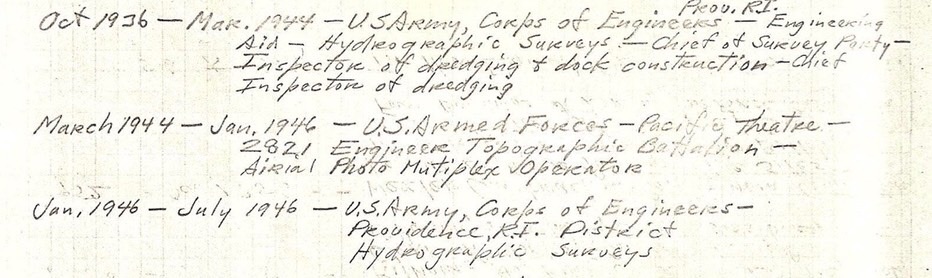 Prov. R.I.
Oct 1936 — Mar. 1944 — U.S Army, Corps of Engineers — Engineering
Aid — Hydrographic Surveys — Chief of Survey Party —
Inspector of dredging & dock construction — Chief
Inspector of dredging
March 1944 — Jan. 1946 — U.S. Armed Forces — Pacific Theatre —
2821 Engineer Topographic Battalion —
Airial Photo Mutiplex Operator
Jan, 1946 — July 1946 — U.S. Army, Corps of Engineers —
Providence, R.I. District
Hydrographic Surveys